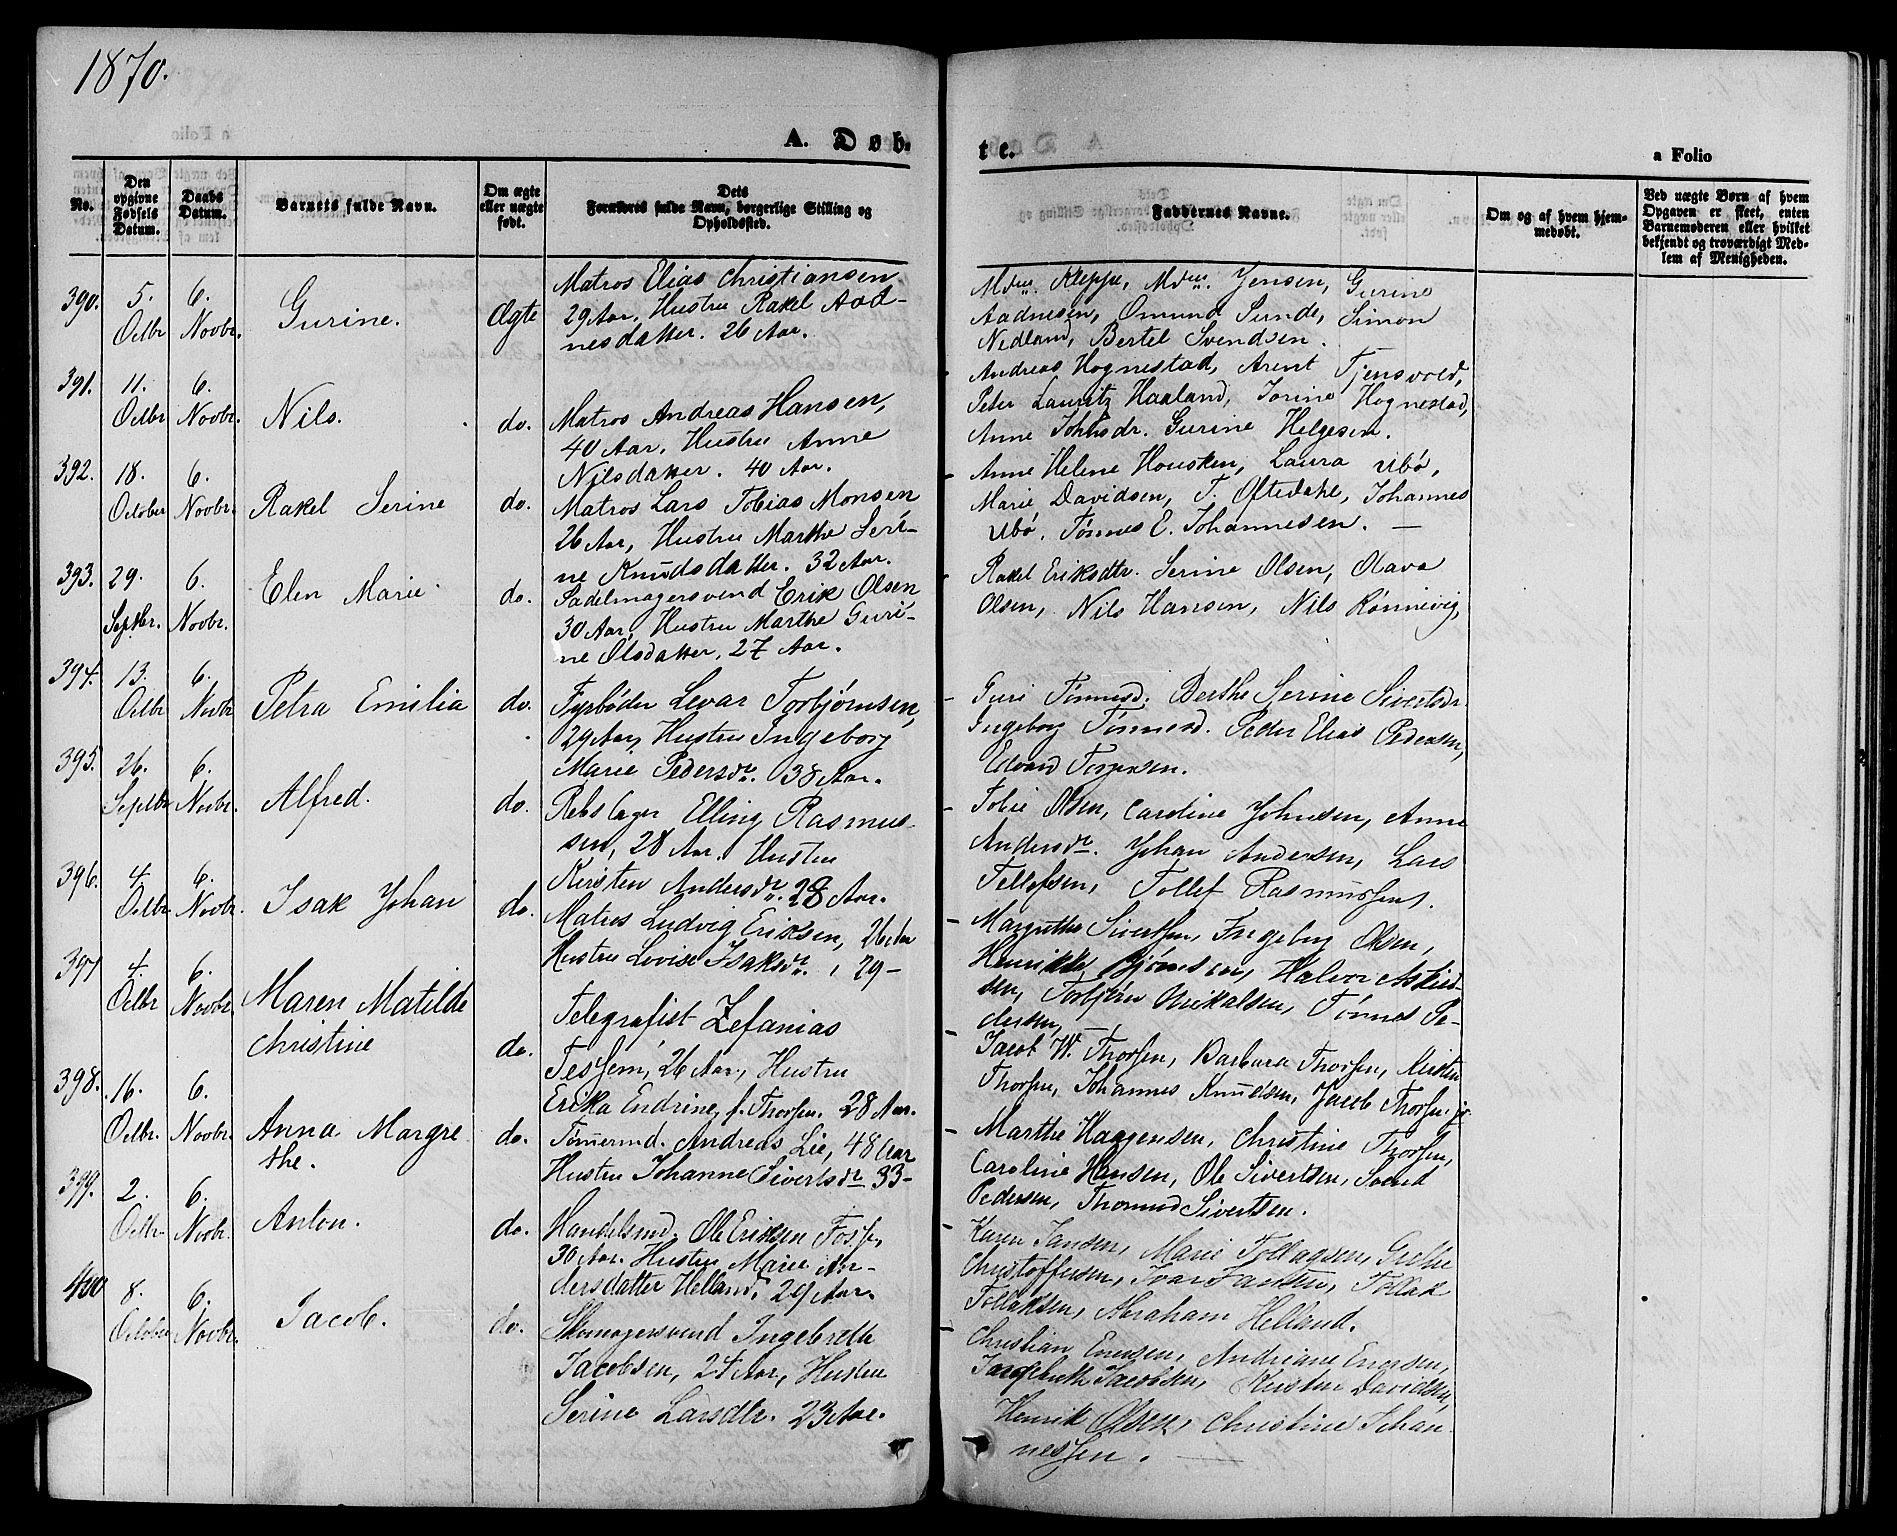 1870.
A. Døb-
No.
Den opgivne Fødsels Datum.
Daabs Datum.
Barnets fulde Navn.
Om ægte eller uægte født.
Dets Forældres fulde Navn, borgerlige Stilling og Opholdssted.
390. 5. Octbr 6. Novbr. Gurine. Ægte
Matros Elias Christiansen
29 Aar, Hustru Rakel Aad-
nesdatter. 26 Aar.
391. 11. Octbr 6. Novbr. Nils. do.
Matros Andreas Hansen,
40 Aar, Hustru Anne
Nilsdatter. 40 Aar.
392. 18. October 6. Novbr. Rakel Serine do.
Matros Lars Tobias Monsen
26 Aar, Hustru Marthe Seri-
ne Knudsdatter. 32 Aar.
393. 29. Septbr. 6. Novbr. Elen Marie do.
Sadelmagersvend Erik Olsen
30 Aar, Hustru Marthe Guri-
ne Olsdatter, 27 Aar.
394. 13. Octbr 6. Novbr Petra Emilia do.
Fyrbøder Levar Torbjørnsen,
29 Aar, Hustru Ingeborg
Marie Pedersdr. 38 Aar.
395. 26. Septbr 6. Novbr. Alfred. do.
Rebslager Elling Rasmus-
sen, 28 Aar. Hustru
Kirsten Andersdr. 28 Aar.
396. 4. Octbr. 6. Novbr. Isak Johan do.
Matros Ludvig Eriksen, 26 Aar
Hustru Lovise Isaksdr., 29-
397 4. Octbr 6. Novbr. Maren Matilde
Christine do.
Telegrafist Zefanias
Tessem, 26 Aar, Hustru
Erika Endrine, f. Thorsen. 28 Aar.
398. 16. Octbr. 6. Novbr. Anna Margre
the. do.
Tømermd. Andreas Lie, 48 Aar
Hustru Johanne Sivertsdr 33-
399. 2. Octbr. 6. Novbr. Anton. do.
Handelsmd. Ole Eriksen Foss,
30 Aar. Hustru Marie An-
dersdatter Helland, 29 Aar.
400 8. October 6. Novbr. Jacob. do.
Skomagersvend Ingebreth
Jacobsen, 24 Aar, Hustru
Serine Larsdtr. 23 Aar.
te.
a Folio
Faddernes Navne.
Om og af hvem hjemmedøbt.
Ved uægte Børn af hvem Opgaven er skeet, enten Barnemoderen eller hvilket bekjendt og troværdigt Medlem af Menigheden.
Mdm. Kleppe, Mdm. Jensen, Gurine
Aadnesen, Omund Sunde, Simon
Nedland, Bertel Svendsen.
Andreas Hognestad, Arent Tjensvold,
Peter Lauritz Haaland, Jorine Hognestad,
Anne Johnsdr. Gurine Helgesen.
Anne Helene Housken, Laura Ubø,
Marie Davidsen, T. Oftedahl, Johannes
Ubø, Tønnes E. Johannesen. —
Rakel Eriksdtr. Serine Olsen, Olava
Olsen, Nils Hansen, Nils Rønnevig,
Guri Tønnesd. Berthe Serine Sivertsdr
Ingeborg Tønnesd. Peder Elias Pedersen,
Edvard Torgersen.
Olsen, Caroline Johnsen, Anne
Andersdr. Johan Andersen, Lars
Tellefsen, Tollef Rasmussen.
Margrethe Sivertsen, Ingeborg Olsen,
Henrikke Bjørnsen, Halvor
sen, Torbjørn Mikalsen, Tønnes Pe-
dersen, —
Jacob W. Thorsen, Barbara Thorsen, Kirsten
Thorsen, Johannes Knudsen, Jacob Thorsen jr.
Marthe Haagensen, Christine Thorsen,
Caroline Hansen, Ole Sivertsen, Svend
Pedersen, Thormod Sivertsen.
Karen Jansen, Marie Tollagsen, Grethe
Christoffersen, Ivar Jansen, Tollak
Tollaksen, Abraham Helland.
Christian Enersen, Andriane Enersen,
Ingebreth Jacobsen, Kirsten Davidsen,
Henrik Olsen, Christine Johan
nessen. —